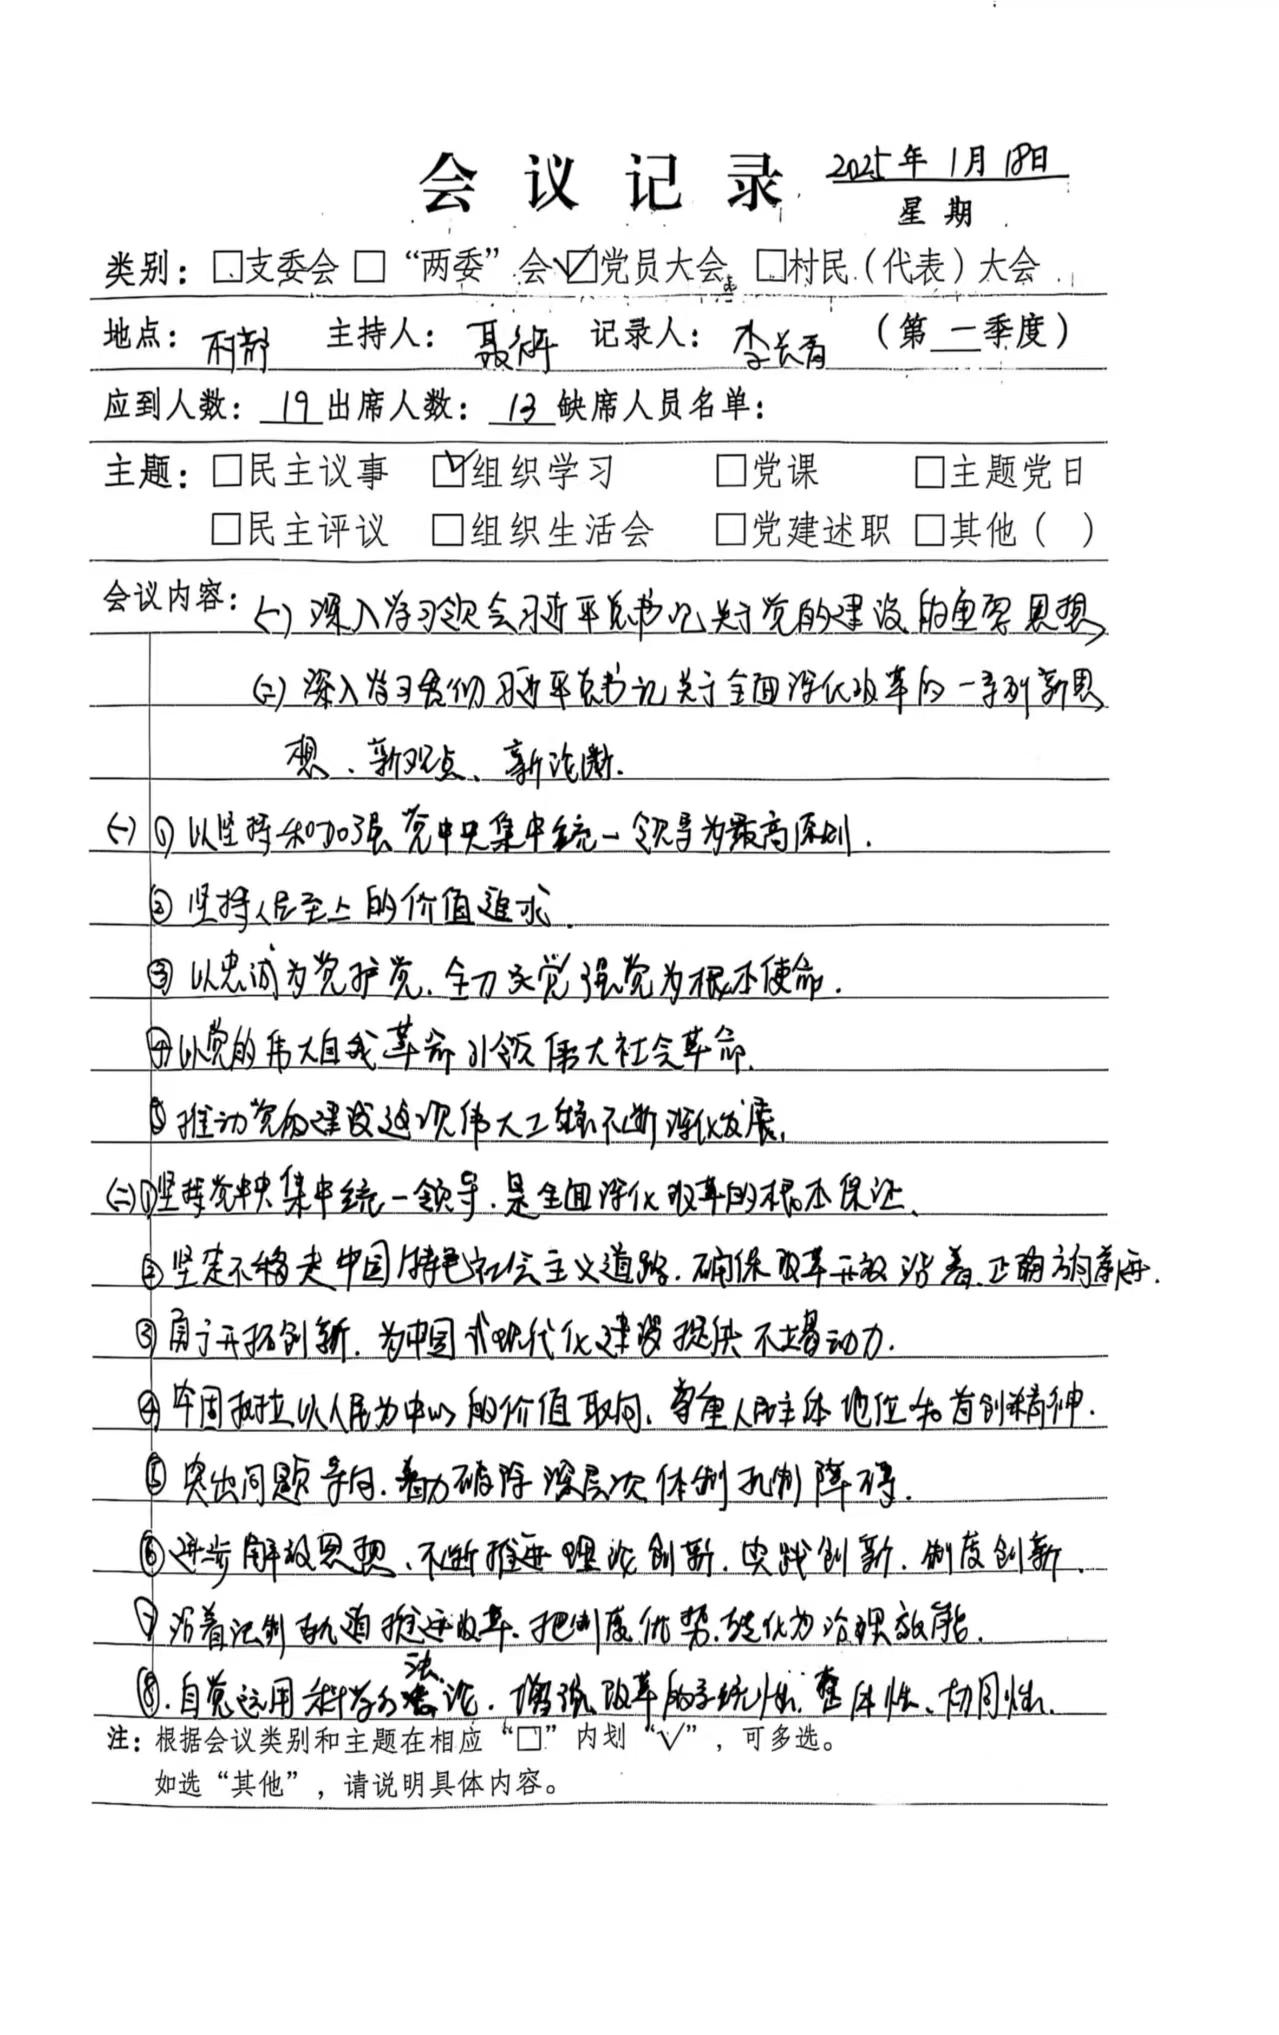 会议记录 2025年1月18日
星期
类别：□支委会 □“两委”会 ☑党员大会 □村民（代表）大会
地点：村部 主持人：聂 记录人：李长青 （第一季度）
应到人数：19 出席人数：13 缺席人员名单：
主题：□民主议事 ☑组织学习 □党课 □主题党日
□民主评议 □组织生活会 □党建述职 □其他（ ）
会议内容：(一)深入学习领会习近平总书记关于党的建设的重要思想、
(二)深入学习贯彻习近平总书记关于全面深化改革的一系列新思
想、新观点、新论断.
(一)①以坚持和加强党中央集中统一领导为最高原则.
②坚持人民至上的价值追求.
③以忠诚为党护党.全力兴党强党为根本使命.
④以党的伟大自我革命引领伟大社会革命.
⑤推动党的建设这项伟大工程不断深化发展.
(二)①坚持党中央集中统一领导.是全面深化改革的根本保证、
②坚定不移走中国特色社会主义道路.确保改革开放沿着正确方向前进.
③勇于开拓创新.为中国式现代化建设提供不竭动力.
④牢固树立以人民为中心的价值取向、尊重人民主体地位和首创精神.
⑤突出问题导向.着力破除深层次体制机制障碍.
⑥进一步解放思想、不断推进理论创新.实践创新.制度创新.
⑦沿着法制轨道推进改革.把制度优势转化为治理效能.
⑧.自觉运用科学方法论.增强改革的系统性.整体性、协同性.
注：根据会议类别和主题在相应“□”内划“√”，可多选。
如选“其他”，请说明具体内容。